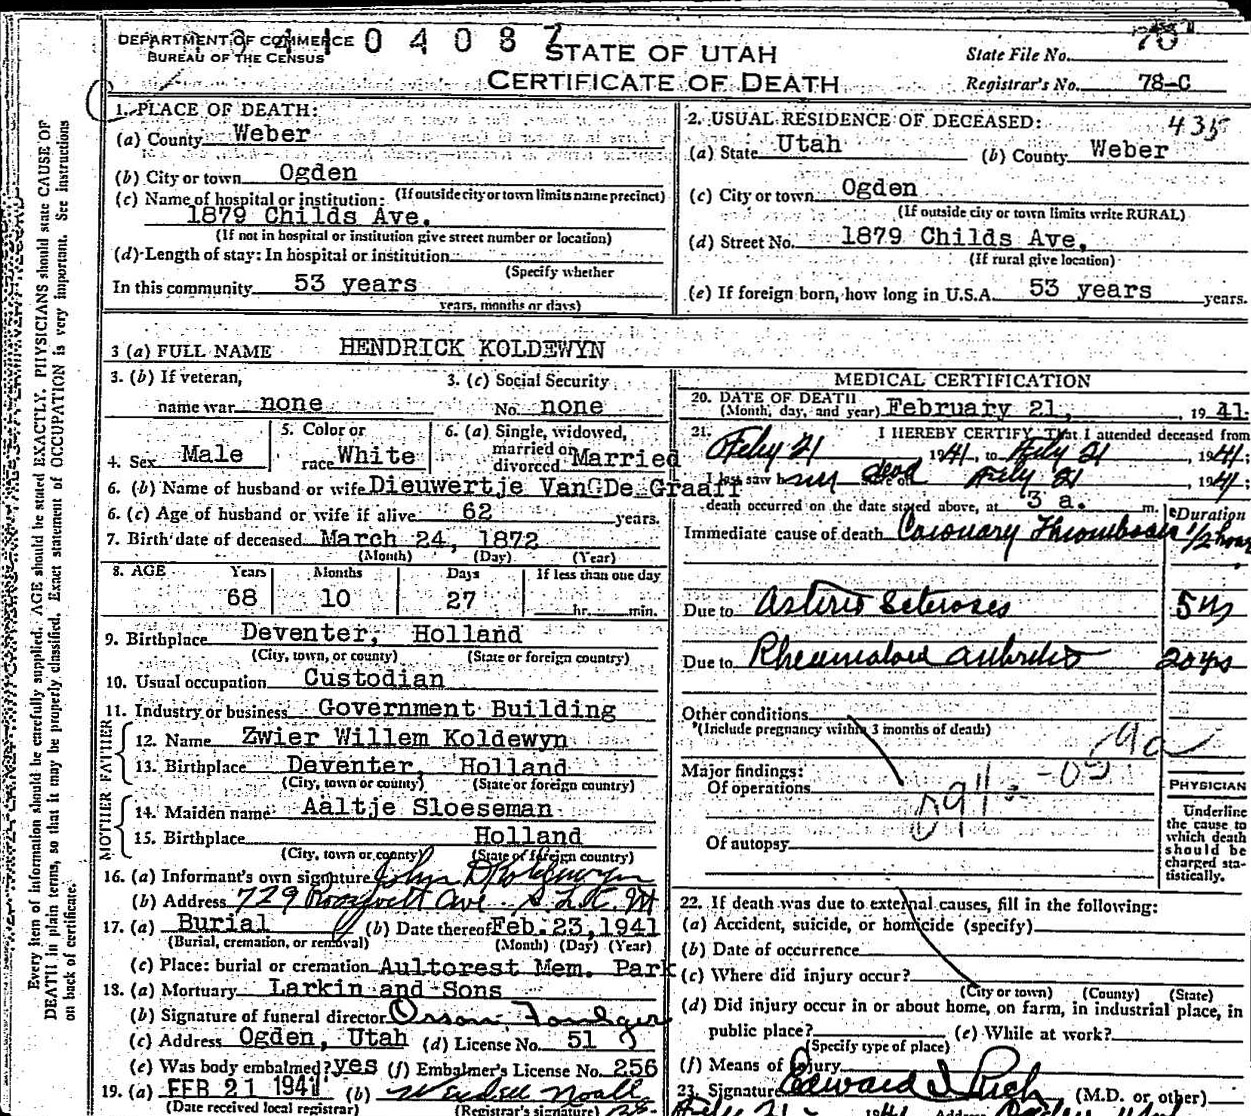 Every item of information should be carefully supplied. AGE should be stated EXACTLY. PHYSICIANS should state CAUSE OF
DEATH in plain terms, so that it may be properly classified. Exact statement of OCCUPATION is very important. See instructions
on back of certificate.
DEPARTMENT OF COMMERCE
BUREAU OF THE CENSUS
04087
STATE OF UTAH
CERTIFICATE OF DEATH
State File No. 78
Registrar's No. 78-C
1. PLACE OF DEATH:
(a) County Weber
(b) City or town Ogden
(If outside city or town limits name precinct)
(c) Name of hospital or institution:
1879 Childs Ave.
(If not in hospital or institution give street number or location)
(d) Length of stay: In hospital or institution
(Specify whether
In this community 53 years
years, months or days)
2. USUAL RESIDENCE OF DECEASED: 435
(a) State Utah (b) County Weber
(c) City or town Ogden
(If outside city or town limits write RURAL)
(d) Street No. 1879 Childs Ave.
(If rural give location)
(e) If foreign born, how long in U.S.A. 53 years years.
3 (a) FULL NAME HENDRICK KOLDEWYN
3. (b) If veteran,
name war none
3. (c) Social Security
No. none
4. Sex Male
5. Color or
race White
6. (a) Single, widowed,
married or
divorced Married
6. (b) Name of husband or wife Dieuwertje Van De Graaff
6. (c) Age of husband or wife if alive 62 years.
7. Birth date of deceased March 24, 1872
(Month) (Day) (Year)
8. AGE Years Months Days If less than one day
68 10 27 hr. min.
9. Birthplace Deventer, Holland
(City, town, or county) (State or foreign country)
10. Usual occupation Custodian
11. Industry or business Government Building
FATHER
12. Name Zwier Willem Koldewyn
13. Birthplace Deventer, Holland
(City, town or county) (State or foreign country)
MOTHER
14. Maiden name Aaltje Sloeseman
15. Birthplace Holland
(City, town or county) (State of foreign country)
16. (a) Informant's own signature John D Koldewyn
(b) Address 729 Roosevelt Ave. S.L.C. Ut
17. (a) Burial (b) Date thereof Feb. 23, 1941
(Burial, cremation, or removal) (Month) (Day) (Year)
(c) Place: burial or cremation Aultorest Mem. Park
18. (a) Mortuary Larkin and Sons
(b) Signature of funeral director Orson Foulger
(c) Address Ogden, Utah (d) License No. 51
(e) Was body embalmed? yes (f) Embalmer's License No. 256
19. (a) FEB 21 1941 (b)
(Date received local registrar) (Registrar's signature)
MEDICAL CERTIFICATION
20. DATE OF DEATH
(Month, day, and year) February 21, 1941
21. I HEREBY CERTIFY That I attended deceased from
Feby 21 1941, to Feby 21, 1941;
I last saw him dead Feby 21, 1941;
death occurred on the date stated above, at 3 a. m.
Duration
Immediate cause of death Coronary Thrombosis 1/2 hour
Due to Asterio Scleroses 5 yrs
Due to Rheumatoid arthritis 20 yrs
Other conditions
(Include pregnancy within 3 months of death)
Major findings:
Of operations
Of autopsy
PHYSICIAN
Underline
the cause to
which death
should be
charged sta-
tistically.
22. If death was due to external causes, fill in the following:
(a) Accident, suicide, or homicide (specify)
(b) Date of occurrence
(c) Where did injury occur?
(City or town) (County) (State)
(d) Did injury occur in or about home, on farm, in industrial place, in
public place? (e) While at work?
(Specify type of place)
(f) Means of injury
23. Signature Edward I Rich (M.D. or other)
Feby 21 1941 Address Ogden